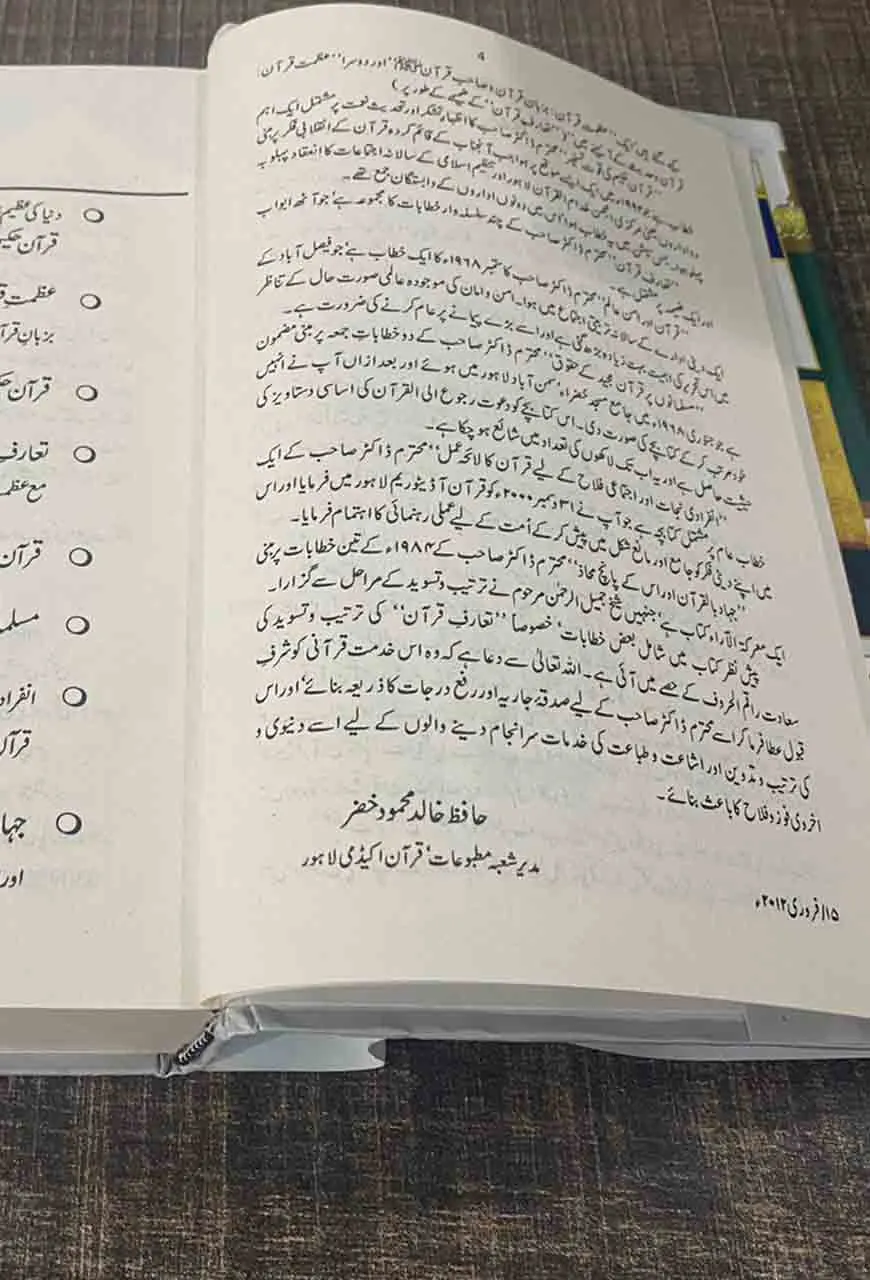 4
کیے گئے ہیں ایک ’’عظمت قرآن: بزبانِ قرآن و صاحبِ قرآن ﷺ‘‘ اور دوسرا ’’عظمت قرآن:
قرآن و حدیث کے آئینے میں‘‘ (’’تعارفِ قرآن‘‘ کے ضمیمے کے طور پر)
’’قرآن حکیم کی قوت تسخیر‘‘ محترم ڈاکٹر صاحب کا اظہارِ تشکر اور تحدیثِ نعمت پر مشتمل ایک اہم
خطاب ہے جو ۱۹۹۲ء میں ایک ایسے موقع پر ہوا جب آنجناب کے قائم کردہ قرآن کے انقلابی فکر پر مبنی
دو اداروں یعنی مرکزی انجمن خدام القرآن لاہور اور تنظیم اسلامی کے سالانہ اجتماعات کا انعقاد پہلو بہ
پہلو ہوا اور جس سیشن میں یہ خطاب ہوا اس میں دونوں اداروں کے وابستگان جمع تھے۔
’’تعارفِ قرآن‘‘ محترم ڈاکٹر صاحب کے چند سلسلہ وار خطابات کا مجموعہ ہے‘ جو آٹھ ابواب
اور ایک ضمیمہ پر مشتمل ہے۔
’’قرآن اور امن عالم‘‘ محترم ڈاکٹر صاحب کا ستمبر ۱۹۶۸ء کا ایک خطاب ہے‘ جو فیصل آباد کے
ایک دینی ادارے کے سالانہ تربیتی اجتماع میں ہوا۔ امن و امان کی موجودہ عالمی صورت حال کے تناظر
میں اس تحریر کی اہمیت بہت زیادہ بڑھ گئی ہے اور اسے بڑے پیمانے پر عام کرنے کی ضرورت ہے۔
’’مسلمانوں پر قرآن مجید کے حقوق‘‘ محترم ڈاکٹر صاحب کے دو خطاباتِ جمعہ پر مبنی مضمون
ہے جو جنوری ۱۹۶۸ء میں جامع مسجد خضراء‘ سمن آباد لاہور میں ہوئے اور بعد ازاں آپ نے انہیں
خود مرتب کر کے کتابچے کی صورت دی۔ اس کتابچے کو دعوت رجوع الی القرآن کی اساسی دستاویز کی
حیثیت حاصل ہے اور یہ اب تک لاکھوں کی تعداد میں شائع ہو چکا ہے۔
’’انفرادی نجات اور اجتماعی فلاح کے لیے قرآن کا لائحہ عمل‘‘ محترم ڈاکٹر صاحب کے ایک
خطاب عام پر مشتمل کتابچہ ہے جو آپ نے ۳۱ دسمبر ۲۰۰۰ء کو قرآن آڈیٹوریم لاہور میں فرمایا اور اس
میں اپنے دینی فکر کو جامع اور مانع شکل میں پیش کر کے اُمت کے لیے عملی رہنمائی کا اہتمام فرمایا۔
’’جہاد بالقرآن اور اس کے پانچ محاذ‘‘ محترم ڈاکٹر صاحب کے ۱۹۸۴ء کے تین خطابات پر مبنی
ایک معرکۃ الآراء کتاب ہے‘ جنہیں شیخ جمیل الرحمٰن مرحوم نے ترتیب و تسوید کے مراحل سے گزارا۔
پیش نظر کتاب میں شامل بعض خطابات‘ خصوصاً ’’تعارفِ قرآن‘‘ کی ترتیب و تسوید کی
سعادت راقم الحروف کے حصے میں آئی ہے۔ اللہ تعالیٰ سے دعا ہے کہ وہ اس خدمت قرآنی کو شرفِ
قبول عطا فرما کر اسے محترم ڈاکٹر صاحب کے لیے صدقۂ جاریہ اور رفع درجات کا ذریعہ بنائے‘ اور اس
کی ترتیب و تدوین اور اشاعت و طباعت کی خدمات سرانجام دینے والوں کے لیے اسے دنیوی و
اخروی فوز و فلاح کا باعث بنائے۔
حافظ خالد محمود خضر
مدیر شعبہ مطبوعات‘ قرآن اکیڈمی لاہور
۱۵/ فروری ۲۰۱۲ء
دنیا کی عظیم
قرآن حکیم
عظمتِ
بزبانِ قرآ
قرآن
تعارف
مع عظم
قرآن
مسلم
انفراد
قرآن
جہا
اور